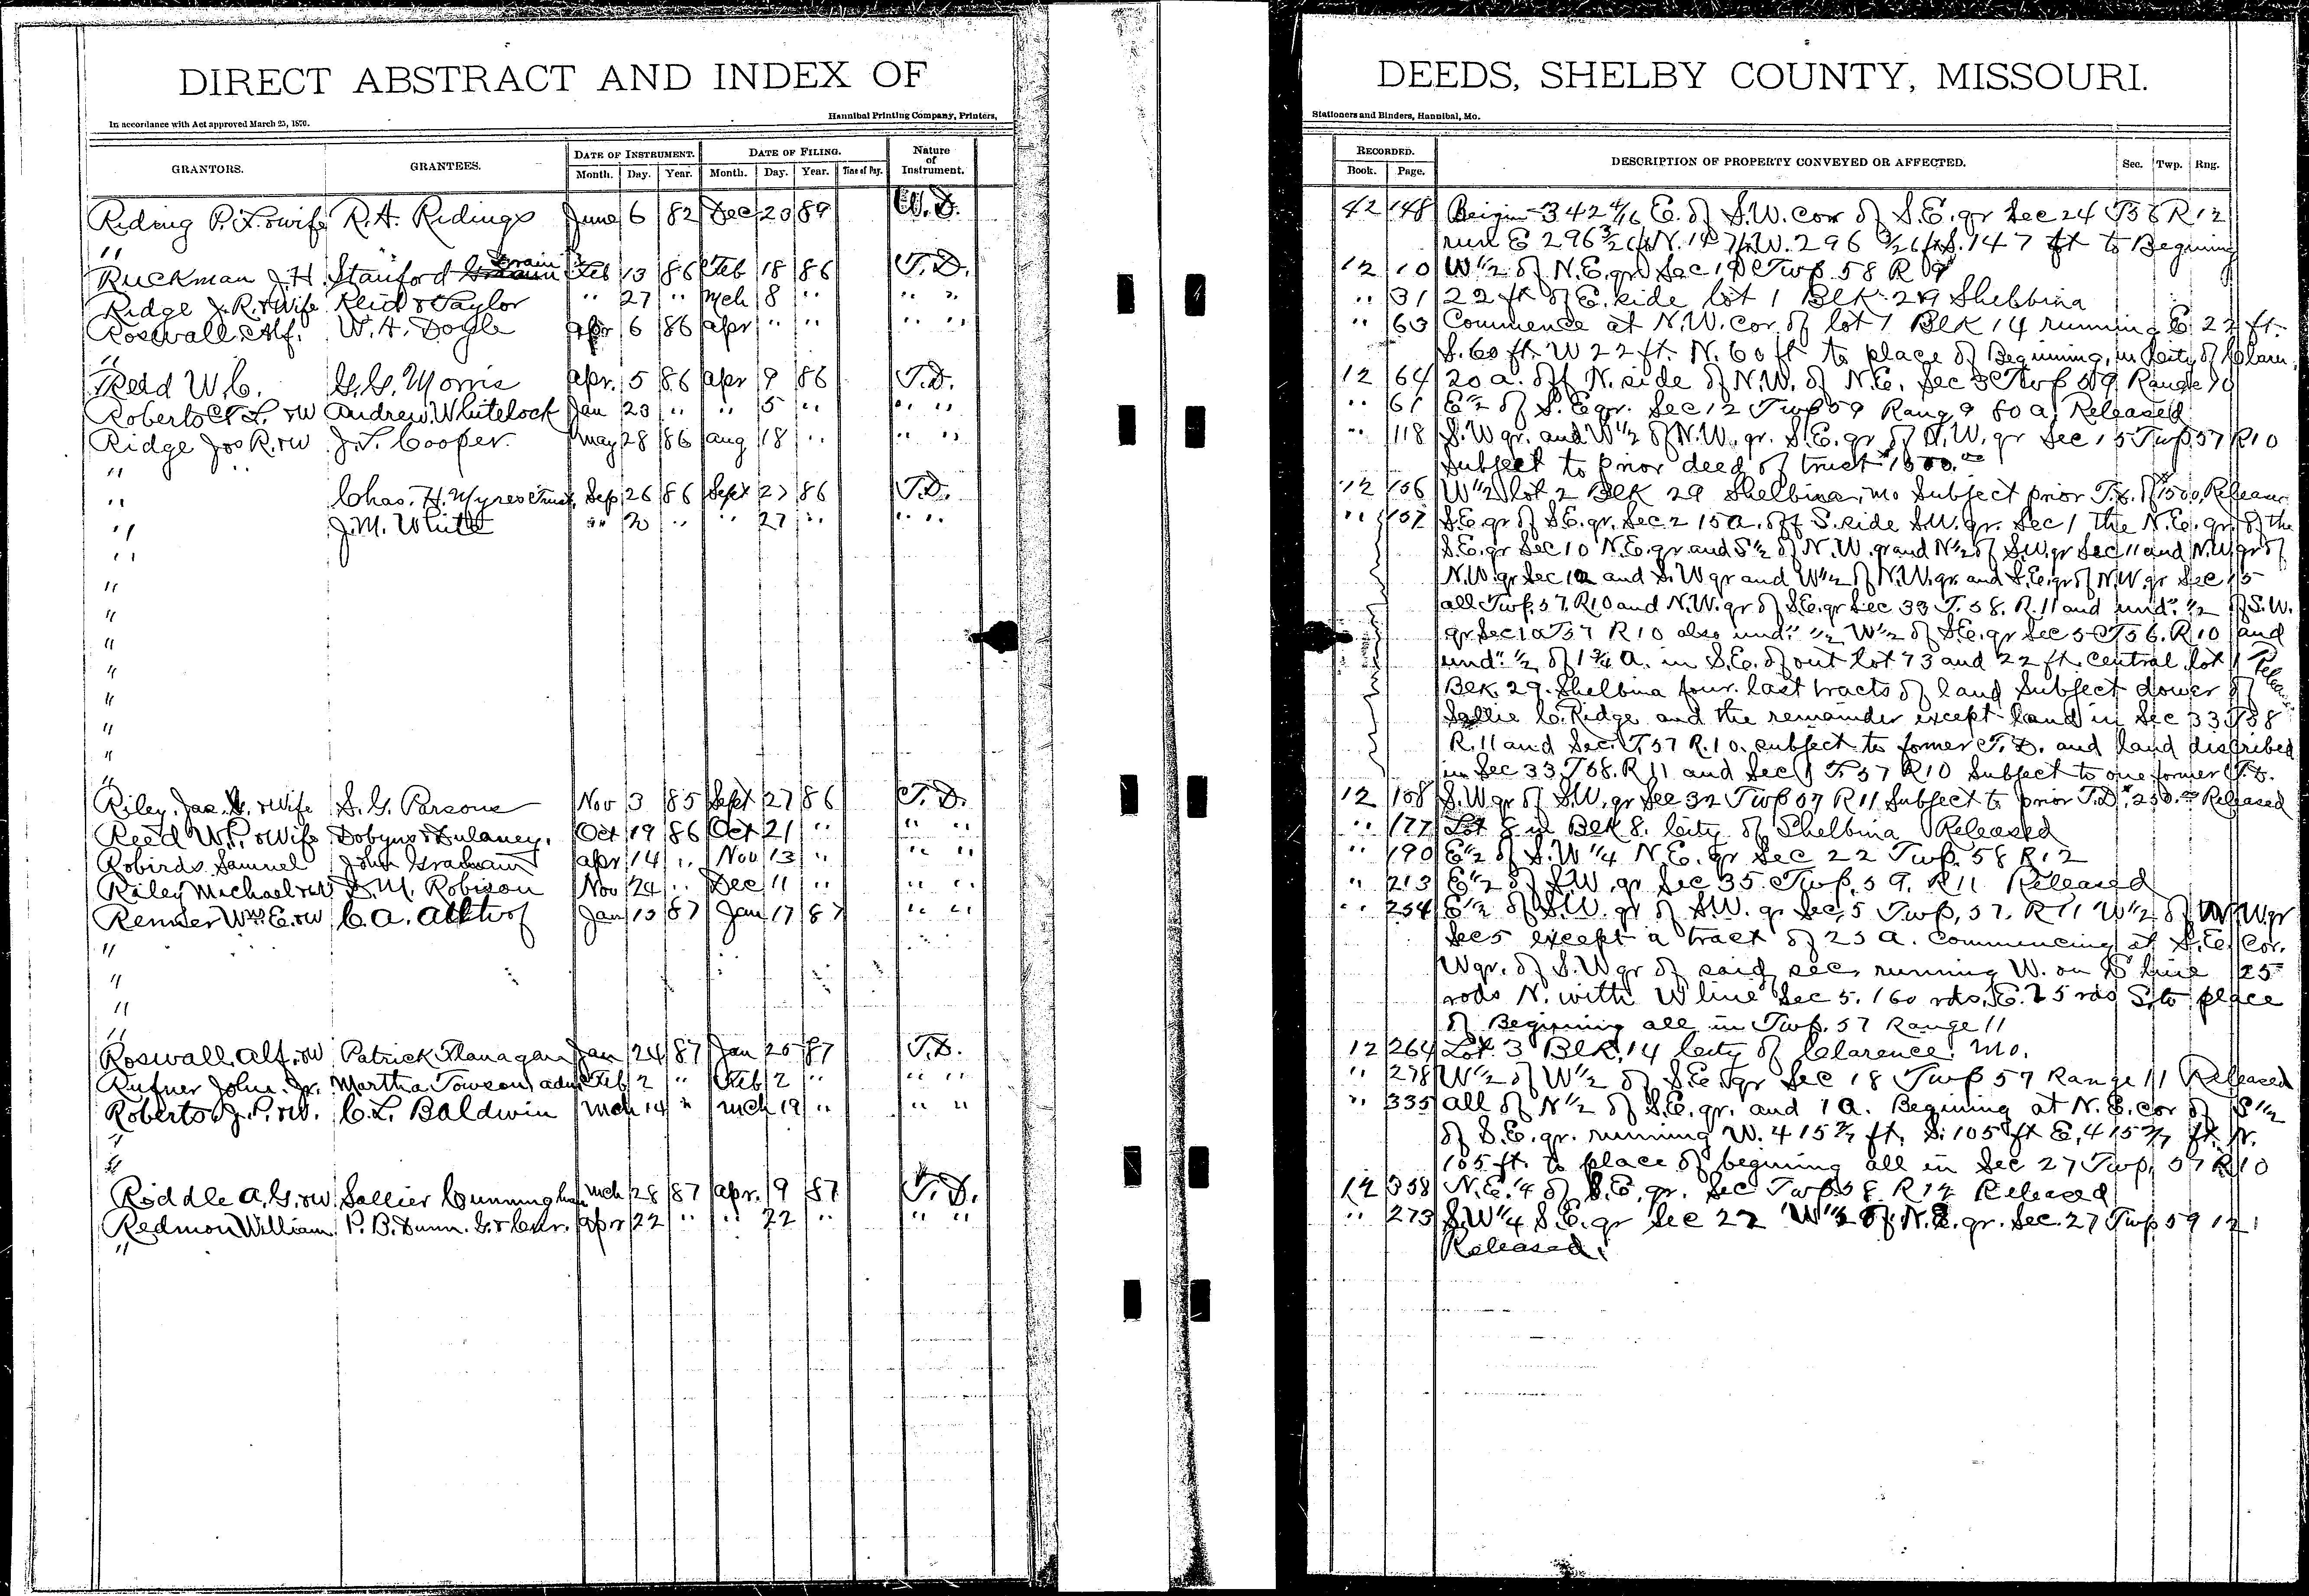 DIRECT ABSTRACT AND INDEX OF DEEDS, SHELBY COUNTY, MISSOURI.
In accordance with Act approved March 25, 1870. Hannibal Printing Company, Printers, Stationers and Binders, Hannibal, Mo.
GRANTORS. GRANTEES. DATE OF INSTRUMENT. DATE OF FILING. Nature of Instrument. RECORDED. DESCRIPTION OF PROPERTY CONVEYED OR AFFECTED. Sec. Twp. Rng.
Month. Day. Year. Month. Day. Year. Time of Day. Book. Page.
Riding P. L. & wife R. A. Ridings June 6 82 Dec 20 89 W. D. 42 148 Beigin 342 4/16 E. of S.W. cor of S.E. qr Sec 24 T56 R12
" run E 296 3/26 ft N. 147 ft W. 296 3/26 ft S. 147 ft to Begining
Ruckman J. H. Stanford Drain Feb 13 86 Feb 18 86 T. D. 12 10 W 1/2 of N.E. qr Sec 19 Twp 58 R 9
Ridge J. R. & Wife Reid & Taylor " 27 " Mch 8 " " " " 31 22 ft of E. side lot 1 Blk 29 Shelbina
Roswall Alf. W. H. Doyle apr 6 86 apr " " " " " 63 Commence at N.W. Cor. of lot 1 Blk 14 running E 22 ft.
" S. 60 ft. W 22 ft. N. 60 ft to place of Beginning, in City of Claren.
Redd W. C. G. G. Morris apr. 5 86 apr 9 86 T. D. 12 64 20 a. off N. side of N.W. of N.E. Sec 3 Twp 59 Range 10
Roberts C. L. & W Andrew Whitelock Jan 23 " " 5 " " " " 61 E 1/2 of S. E qr. Sec 12 Twp 59 Rang 9 80 a. Released
Ridge Jos R. & W J. T. Cooper. May 28 86 aug 18 " " " " 118 S. W qr. and W 1/2 of N.W. qr. S.E. qr of N.W. qr Sec 15 Twp 57 R10
" " Subject to prior deed of trust $1500.00
" Chas. H. Myres Trust. Sep 26 86 Sept 27 86 T. D. 12 156 W 1/2 lot 2 Blk 29 Shelbina, Mo Subject prior T.D. of $1500, Release
" J. M. White " 20 " " 27 " " " " 157 S.E qr of S.E. qr. Sec 2 15 a. off S. side S.W. qr. Sec 1 the N.E. qr. of the
" S.E. qr Sec 10 N.E. qr and S 1/2 of N.W. qr and N 1/2 of S.W qr Sec 11 and N.W. qr of
" N.W. qr Sec 12 and S.W qr and W 1/2 of N.W. qr and S.E. qr of N.W. qr Sec 15
" all Twp. 57. R10 and N.W. qr of S.E. qr Sec 33 T. 58. R. 11 and und. 1/2 of S.W.
" qr Sec 10 T57 R 10 also und. 1/2 W 1/2 of S.E. qr Sec 5 T56. R 10 and
" und. 1/2 of 1 3/4 a. in S.E. of out lot 73 and 22 ft. central lot 1
" Blk. 29. Shelbina four last tracts of land Subject dower of
" Sallie C. Ridge and the remainder except land in Sec 33 T58
" R. 11 and Sec 1 T. 57 R. 10. subject to former T. D. and land discribed
" in Sec 33 T58. R 11 and Sec 1 T. 57 R 10 Subject to one former T. D.
Riley, Jas. & Wife S. G. Parsons Nov 3 85 Sept 27 86 T. D. 12 158 S.W qr of S.W. qr Sec 32 Twp 57 R 11 Subject to prior T. D. $250.00 Released
Reed W. P. & Wife Dobyns & Dulaney. Oct 19 86 Oct 21 " " " " 177 Lot 8 in Blk 8. City of Shelbina Released
Robirds Samuel John Graham apr 14 " Nov 13 " " " " 190 E 1/2 of S.W 1/4 N.E. qr Sec 22 Twp. 58 R 12
Riley Michael & W D. M. Robison Nov 24 " Dec 11 " " " " 213 E 1/2 of S.W. qr Sec 35 Twp, 59. R11 Released
Renner Wm. E. & W C. A. Althof Jan 15 87 Jan 17 87 " " " 254 E 1/2 of S.W. qr of S.W. qr Sec. 5 Twp, 57. R 11 W 1/2 of W qr
" Sec 5 except a tract of 25 a. commencing at S.E. Cor.
" W qr. of S. W qr of said sec. running W. on S line 25
" rods N. with W line Sec 5. 160 rds, E. 25 rds S. to place
" of Begining all in Twp. 57 Range 11
Roswall, Alf. & W Patrick Flanagan Jan 24 87 Jan 25 87 T. D. 12 264 Lot. 3 Blk. 14 City of Clarence. Mo.
Rufner John Jr. Martha Towson, adm Feb 2 " Feb 2 " " " " 278 W 1/2 of W 1/2 of S.E. qr Sec 18 Twp 57 Range 11 Released
Roberts J. P. & W. C. L. Baldwin Mch 14 " Mch 19 " " " " 335 all of N 1/2 of S.E. qr. and 1 a. Begining at N. E. cor of S 1/2
" of S.E. qr. running W. 415 2/7 ft. S. 105 ft E. 415 2/7 ft. N.
" 105 ft. to place of begining all in Sec 27 Twp, 57 R 10
Riddle A. G. & W Sallier Cunningham Mch 28 87 apr. 9 87 T. D. 12 358 N.E. 1/4 of S.E. qr. Sec Twp 58 R 12 Released
Redmon William P. B. Dunn. G. & Cur. apr 22 " " 22 " " " " 273 S.W 1/4 S.E. qr Sec 22 W 1/2 of N.E. qr. Sec. 27 Twp 59 12
" Released.